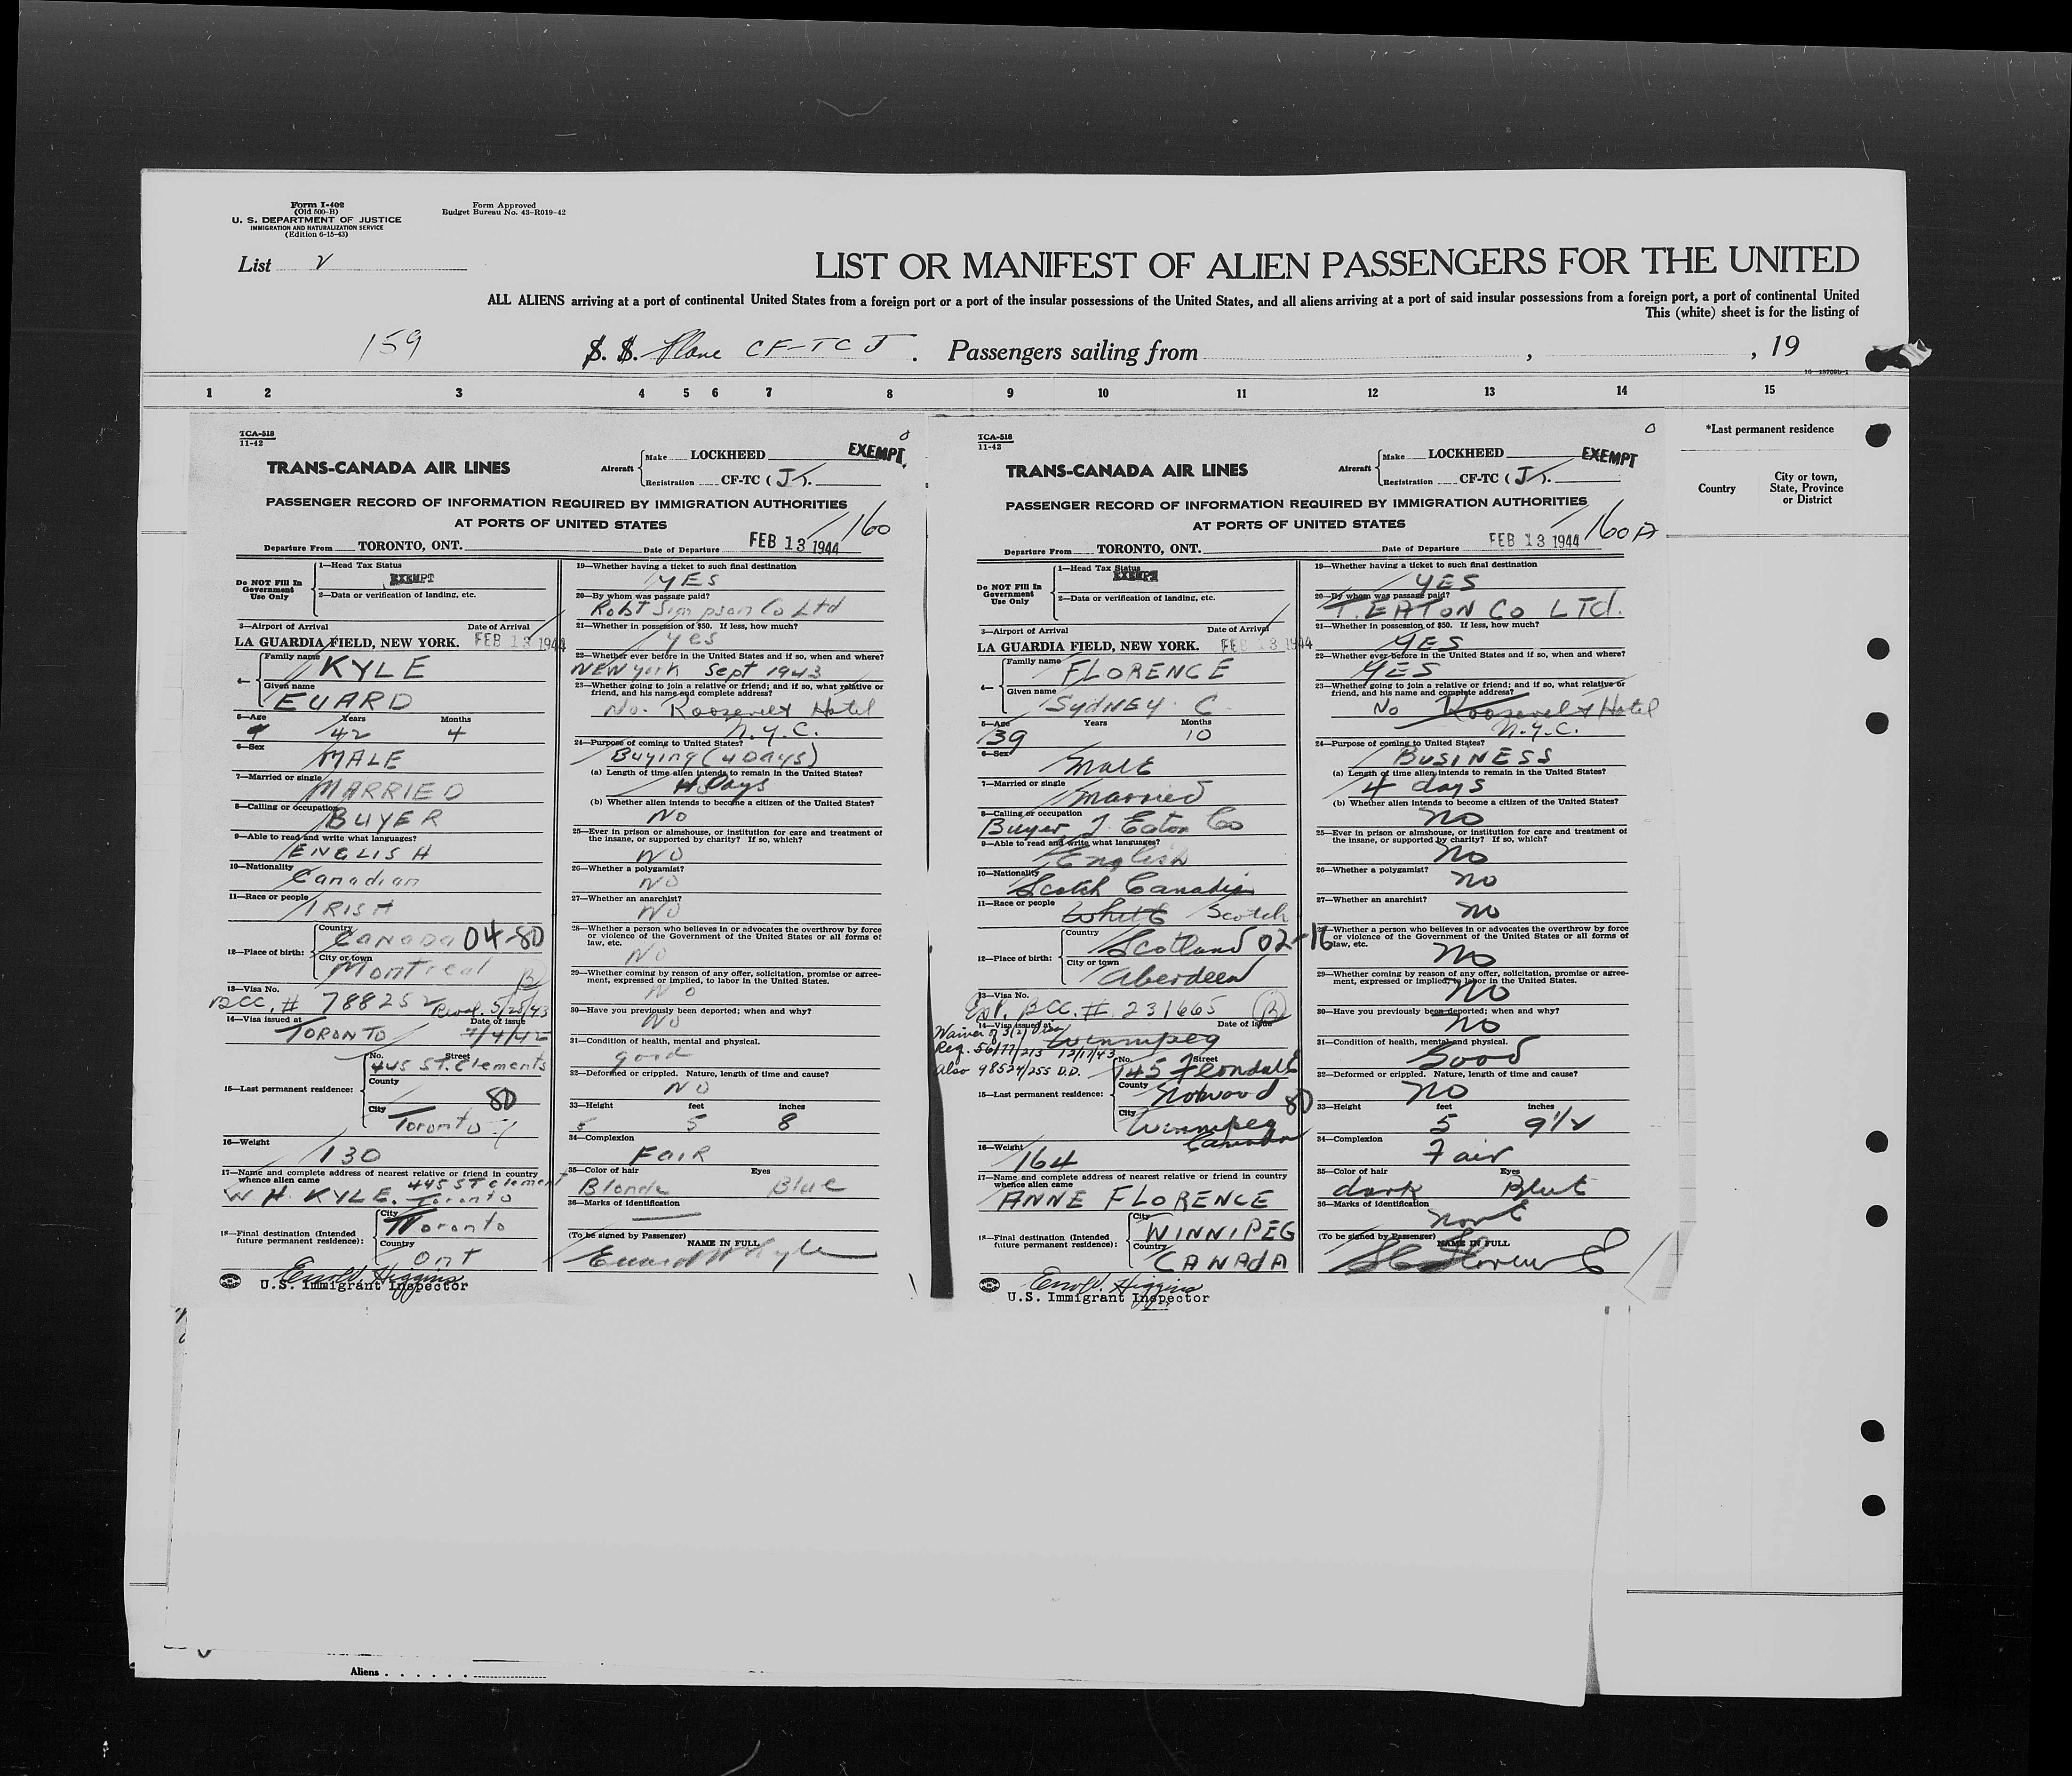 Form I-402
(Old 500-B)
U. S. DEPARTMENT OF JUSTICE
IMMIGRATION AND NATURALIZATION SERVICE
(Edition 6-15-43)
Form Approved
Budget Bureau No. 43-R019-42
List
LIST OR MANIFEST OF ALIEN PASSENGERS FOR THE UNITED
ALL ALIENS arriving at a port of continental United States from a foreign port or a port of the insular possessions of the United States, and all aliens arriving at a port of said insular possessions from a foreign port, a port of continental United
This (white) sheet is for the listing of
159
S. S. Plane CF-TC J. Passengers sailing from , , 19
1 2 3 4 5 6 7 8 9 10 11 12 13 14 15
*Last permanent residence
Country
City or town,
State, Province
or District
TCA-518
11-42
TRANS-CANADA AIR LINES
Aircraft
Make LOCKHEED
Registration CF-TC ( J ).
EXEMPT
PASSENGER RECORD OF INFORMATION REQUIRED BY IMMIGRATION AUTHORITIES
AT PORTS OF UNITED STATES
160
Departure From TORONTO, ONT.
Date of Departure FEB 13 1944
Do NOT Fill In
Government
Use Only
1—Head Tax Status
EXEMPT
2—Data or verification of landing, etc.
3—Airport of Arrival Date of Arrival
LA GUARDIA FIELD, NEW YORK. FEB 13 1944
4— Family name KYLE
Given name EUARD
5—Age Years Months
42 4
6—Sex
MALE
7—Married or single
MARRIED
8—Calling or occupation
BUYER
9—Able to read and write what languages?
ENGLISH
10—Nationality
Canadian
11—Race or people
IRISH
12—Place of birth:
Country
CANADA 04-80
City or town
Montreal
B
13—Visa No.
BCC. # 788252 Reval. 5/25/43
14—Visa issued at Date of issue
TORONTO 7/4/42
15—Last permanent residence:
No. Street
445 ST. Clements
County
80
City
Toronto
16—Weight
130
17—Name and complete address of nearest relative or friend in country
whence alien came
445 ST Clement
W. H. KYLE. Toronto
18—Final destination (Intended
future permanent residence):
City
Toronto
Country
Ont
Errol Higgins
U.S. Immigrant Inspector
19—Whether having a ticket to such final destination
YES
20—By whom was passage paid?
Robt Simpson Co Ltd
21—Whether in possession of $50. If less, how much?
yes
22—Whether ever before in the United States and if so, when and where?
NEW york Sept 1943
23—Whether going to join a relative or friend; and if so, what relative or
friend, and his name and complete address?
No. Roosevelt Hotel
N.Y.C.
24—Purpose of coming to United States?
Buying (4 DAYS)
(a) Length of time alien intends to remain in the United States?
4 Days
(b) Whether alien intends to become a citizen of the United States?
NO
25—Ever in prison or almshouse, or institution for care and treatment of
the insane, or supported by charity? If so, which?
NO
26—Whether a polygamist?
NO
27—Whether an anarchist?
NO
28—Whether a person who believes in or advocates the overthrow by force
or violence of the Government of the United States or all forms of
law, etc.
No
29—Whether coming by reason of any offer, solicitation, promise or agree-
ment, expressed or implied, to labor in the United States.
No
30—Have you previously been deported; when and why?
No
31—Condition of health, mental and physical.
good
32—Deformed or crippled. Nature, length of time and cause?
NO
33—Height feet inches
5 8
34—Complexion
FAIR
35—Color of hair Eyes
Blonde Blue
36—Marks of identification
(To be signed by Passenger)
NAME IN FULL
Euard W Kyle
TCA-518
11-42
TRANS-CANADA AIR LINES
Aircraft
Make LOCKHEED
Registration CF-TC ( J ).
EXEMPT
PASSENGER RECORD OF INFORMATION REQUIRED BY IMMIGRATION AUTHORITIES
AT PORTS OF UNITED STATES
160 A
Departure From TORONTO, ONT.
Date of Departure FEB 13 1944
Do NOT Fill In
Government
Use Only
1—Head Tax Status
EXEMPT
2—Data or verification of landing, etc.
3—Airport of Arrival Date of Arrival
LA GUARDIA FIELD, NEW YORK. FEB 13 1944
4— Family name FLORENCE
Given name SYDNEY C.
5—Age Years Months
39 10
6—Sex
Male
7—Married or single
Married
8—Calling or occupation
Buyer T. Eaton Co
9—Able to read and write what languages?
English
10—Nationality
Scotch Canadian
11—Race or people
White Scotch
12—Place of birth:
Country
Scotland 02-16
City or town
Aberdeen
13—Visa No.
BCC. # 231665 B
14—Visa issued at Date of issue
Waiver of 3(2) Visa Winnipeg
Reg. 56177/213 12/17/43
Also 98524/255 D.D.
15—Last permanent residence:
No. Street
145
County
Norwood 80
City
Winnipeg
Canada
16—Weight
164
17—Name and complete address of nearest relative or friend in country
whence alien came
ANNE FLORENCE
18—Final destination (Intended
future permanent residence):
City
WINNIPEG
Country
CANADA
Errol Higgins
U.S. Immigrant Inspector
19—Whether having a ticket to such final destination
YES
20—By whom was passage paid?
T. EATON CO LTd.
21—Whether in possession of $50. If less, how much?
YES
22—Whether ever before in the United States and if so, when and where?
YES
23—Whether going to join a relative or friend; and if so, what relative or
friend, and his name and complete address?
No Roosevelt Hotel
N.Y.C.
24—Purpose of coming to United States?
BUSINESS
(a) Length of time alien intends to remain in the United States?
4 days
(b) Whether alien intends to become a citizen of the United States?
no
25—Ever in prison or almshouse, or institution for care and treatment of
the insane, or supported by charity? If so, which?
no
26—Whether a polygamist?
no
27—Whether an anarchist?
no
28—Whether a person who believes in or advocates the overthrow by force
or violence of the Government of the United States or all forms of
law, etc.
no
29—Whether coming by reason of any offer, solicitation, promise or agree-
ment, expressed or implied, to labor in the United States.
no
30—Have you previously been deported; when and why?
no
31—Condition of health, mental and physical.
Good
32—Deformed or crippled. Nature, length of time and cause?
no
33—Height feet inches
5 9 1/2
34—Complexion
Fair
35—Color of hair Eyes
dark Blue
36—Marks of identification
none
(To be signed by Passenger)
NAME IN FULL
S C Florence
Aliens